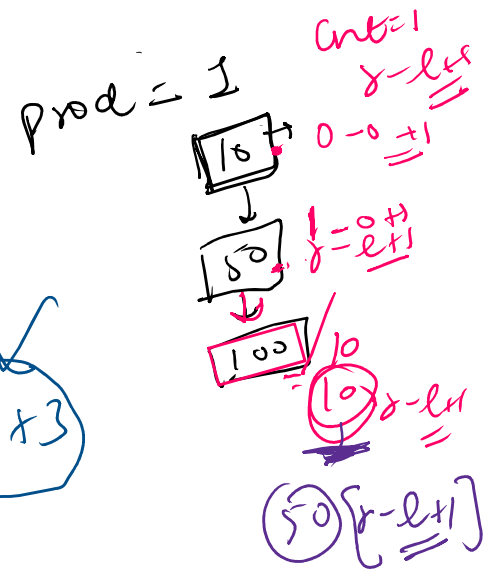 Cnt=1
r-l+1
prod = 1
10
0-0+1
1-0+1
50
r=l+1
100
10
10 r-l+1
+3
50 [r-l+1]